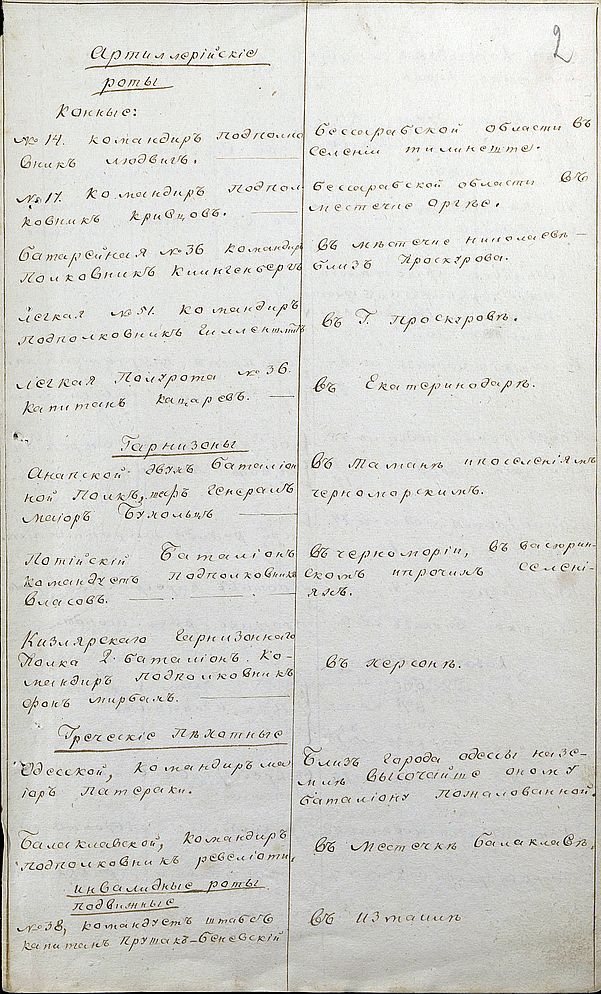 2
Артиллерійскіе
роты
Конные:
№ 14. командиръ подполко
вникъ людвигъ.
бессарабской области въ
селеніи тилинеште.
№ 17. командиръ подпол
ковникъ кривцовъ.
бессарабской области въ
местечке Оргѣе.
батарейная № 36 командиръ
Полковникъ Клингенбергъ
въ мѣстечке николаевѣ
близъ Проскурова.
легкая № 51. командиръ
Подполковникъ
въ Г. Проскуровѣ.
легкая Полурота № 36.
капитанъ катаревъ.
въ Екатеринодарѣ.
Гарнизоны
Анапской двухъ баталіон
ной Полкъ, шефъ Генералъ
маіоръ Бухольцъ
въ таманѣ ипоселеніямъ
черноморскимъ.
Потійскій Баталіонъ
командуетъ подполковникъ
Власовъ.
въ черноморіи, въ васюрин-
скомъ ипрочихъ селені-
яхъ.
Кизлярскаго гарнизоннаго
Полка 2 баталіонъ. Ко-
мандиръ подполковникъ
фонъ мирбахъ.
въ херсонѣ.
Греческіе Пѣхотные
Одесской, командиръ ма
іоръ Патераки.
Близъ города одессы назе-
млѣ Высочайше оному
баталіону Пожалованной.
Балаклавской, командиръ
подполковникъ ревеліоти,
въ местечкѣ балаклавѣ,
инвалидные роты
подвижные
№ 38, командуетъ штабсъ
капитанъ Прутакъ-беневскій
въ Измаилѣ